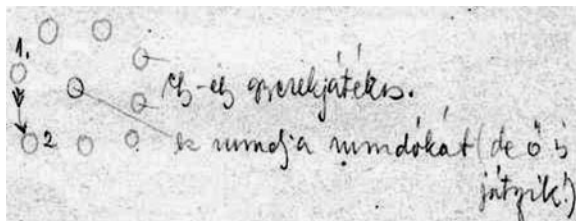 1.
egy-egy gyerekjátékos.
2
ez mondja a mondókát (de ő is
játszik!)